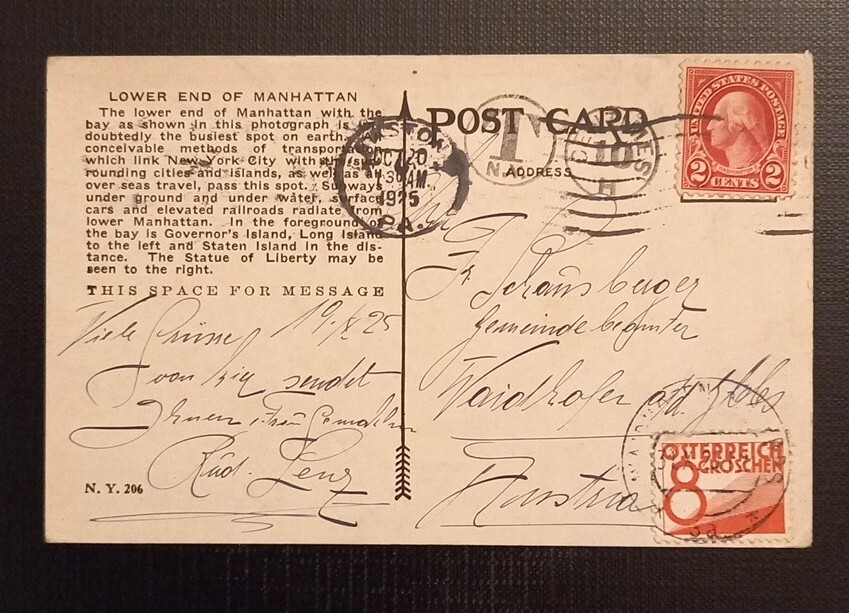 LOWER END OF MANHATTAN
The lower end of Manhattan with the
bay as shown in this photograph is
doubtedly the busiest spot on earth.
conceivable methods of transportation
which link New York City with the sur-
rounding cities and islands, as well as all
over seas travel, pass this spot. Subways
under ground and under water, surface
cars and elevated railroads radiate from
lower Manhattan. In the foreground of
the bay is Governor's Island, Long Island
to the left and Staten Island in the dis-
tance. The Statue of Liberty may be
seen to the right.
THIS SPACE FOR MESSAGE
Viele Grüsse 19. X 25
von hier sendet
Ihnen Frau Gemahlin
Rud. Lenz
N. Y. 206
POST CARD
ADDRESS
T
N.
OCT 20
30 AM
1925
PA.
10
UNITED STATES POSTAGE
2 CENTS 2
Gemeindebeamter
Waidhofen a/d. Ybbs
Austria
ÖSTERREICH
8 GROSCHEN